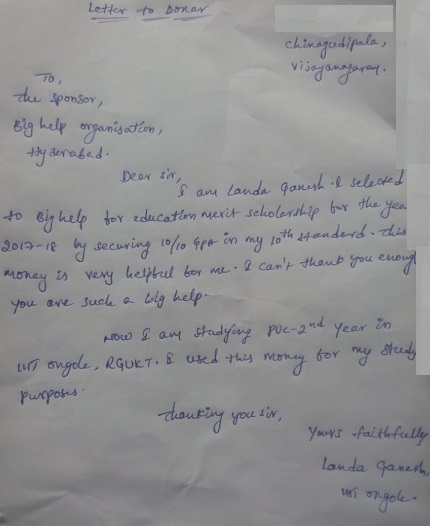 Letter to Donar
Chinagudipala,
Vijayanagaray.
To,
the sponsor,
Big help organisation,
Hyderabad.
Dear sir,
I am Landa Ganesh. I selected
to Bighelp for education merit scholarship for the year
2017-18 by securing 10/10 GPA in my 10th standard. This
money is very helpful for me. I can't thank you enough
you are such a big help.
Now I am studying PUC-2nd Year in
IIIT ongole, RGUKT. I used this money for my study
purposes.
Thanking you sir,
Yours faithfully
Landa Ganesh,
IIIT ongole.